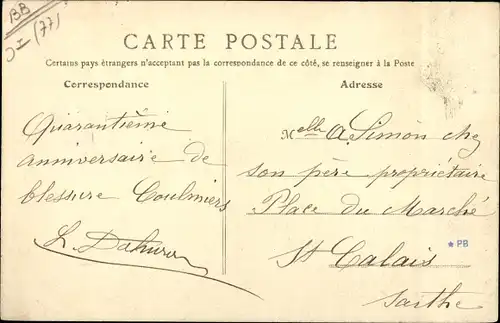 BB
(77)
CARTE POSTALE
Certains pays étrangers n'acceptant pas la correspondance de ce côté, se renseigner à la Poste
Correspondance
Quarantième
anniversaire de
blessure Coulmiers
Adresse
Melle A. Simon chez
son père propriétaire
Place du Marché
St Calais
Sarthe
* PB